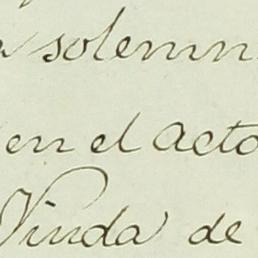 a solemn
en el acto
Viuda de